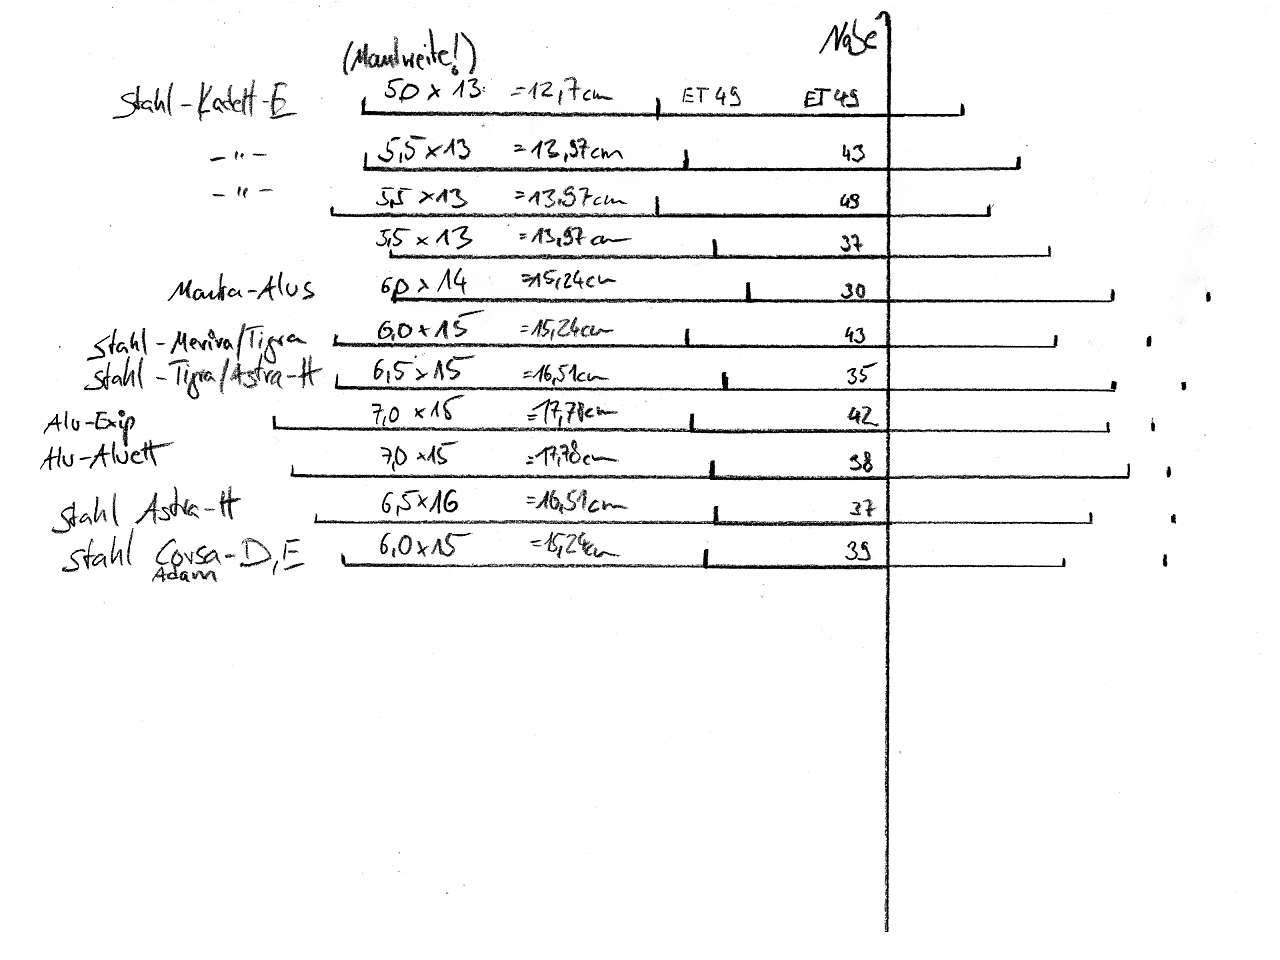 Nabe
(Maulweite!)
Stahl-Kadett-E 5,0 x 13 =12,7cm ET 49 ET 49
- " - 5,5 x 13 =13,97cm 43
- " - 5,5 x 13 =13,97cm 49
5,5 x 13 =13,97cm 37
Manta-Alus 6,0 x 14 =15,24cm 30
Stahl-Meriva/Tigra 6,0 x 15 =15,24cm 43
Stahl-Tigra/Astra-H 6,5 x 15 =16,51cm 35
Alu-Exip 7,0 x 15 =17,78cm 42
Alu-Aluett 7,0 x 15 =17,78cm 38
Stahl Astra-H 6,5 x 16 =16,51cm 37
Stahl Corsa-D,E 6,0 x 15 =15,24cm 39
Adam